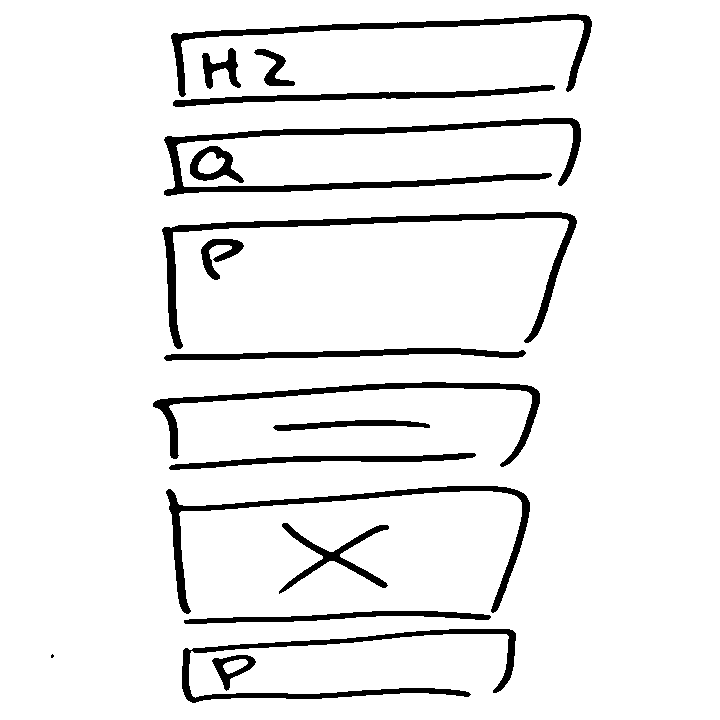 H2
Q
P
P